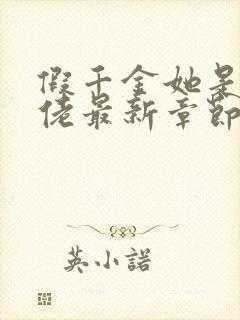 假千金她是
佬最新章節
英小諾